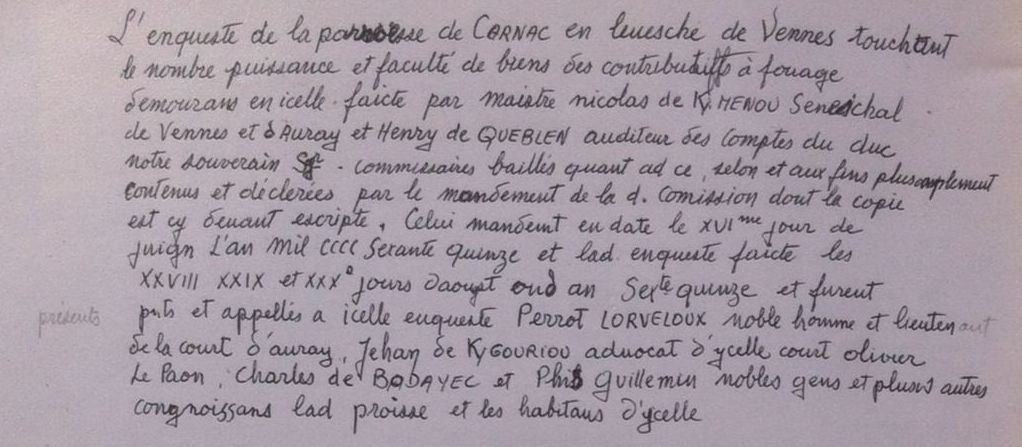 L'enqueste de la parroesse de CARNAC en leuesche de Vennes touchant
le nombre puissance et faculté de biens des contributiffs à fouage
demourans en icelle faicte par maistre nicolas de Ky MENOU Seneschal
de Vennes et d'Auray et Henry de QUEBLEN auditeur des comptes du duc
notre souverain Sgr - commissaires baillés quant ad ce, selon et aux fins plus amplement
contenus et déclerées par le mandement de la d. Comission dont la copie
est cy deuant escripte. Celui mandemt en date le XVI me jour de
juign L'an Mil CCCC Sexante quinze et lad. enqueste faicte les
XXVIII XXIX et XXX e jours daougt oud an Sexte quinze et furent
présents pnts et appellés a icelle enqueste Perrot LORVELOUX noble homme et lieutenant
de la court d'auray, Jehan de KyGOURIOU aduocat d'ycelle court olivier
Le Paon, Charles de BODAYEC et Phis Guillemin nobles gens et plusrs autres
congnoissans lad proisse et les habitans d'ycelle